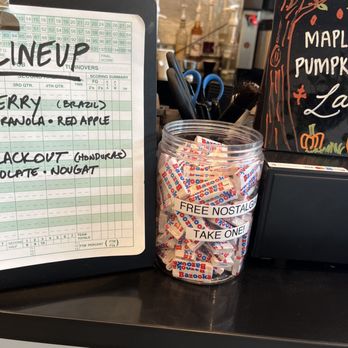 LINEUP
TURNOVERS
SCORING SUMMARY
3RD QTR.
4TH QTR.
ERRY (BRAZIL)
RANOLA • RED APPLE
LACKOUT (HONDURAS)
OLATE • NOUGAT
FREE NOSTALG
TAKE ONE!
Bazooka
MAPL
PUMPK
La